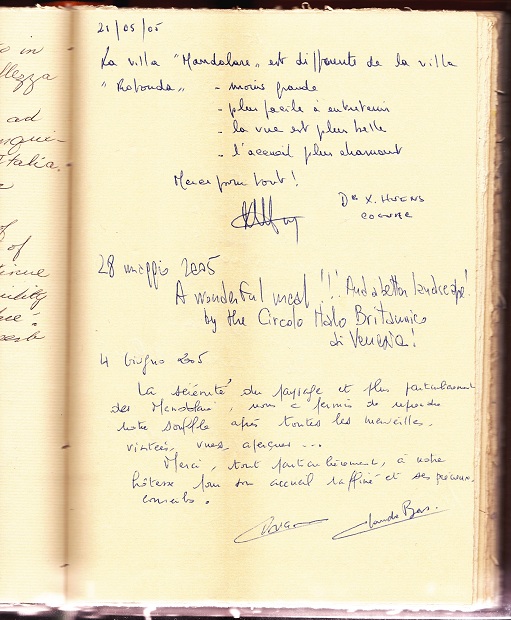 in
ellezza
ad
Italia.
of
of
21/05/05
La villa "Mandolare" est différente de la villa
"Rotonda" - moins grande
- plus facile à entretenir
- la vue est plus belle
- l'accueil plus charmant
Merci pour tout!
DR X. HUENS
28 maggio 2005
A wonderful meal!!! And a better landscape!
by the Circolo Italo Britannico
di Venezia!
4 Giugno 2005
La sérénité du paysage et plus particulièrement
des Mandolare, nous a permis de reprendre
notre souffle après toutes les merveilles
visitées, vues, aperçues ...
Merci, tout particulièrement, à notre
hôtesse pour son accueil raffiné et ses précieux
conseils.